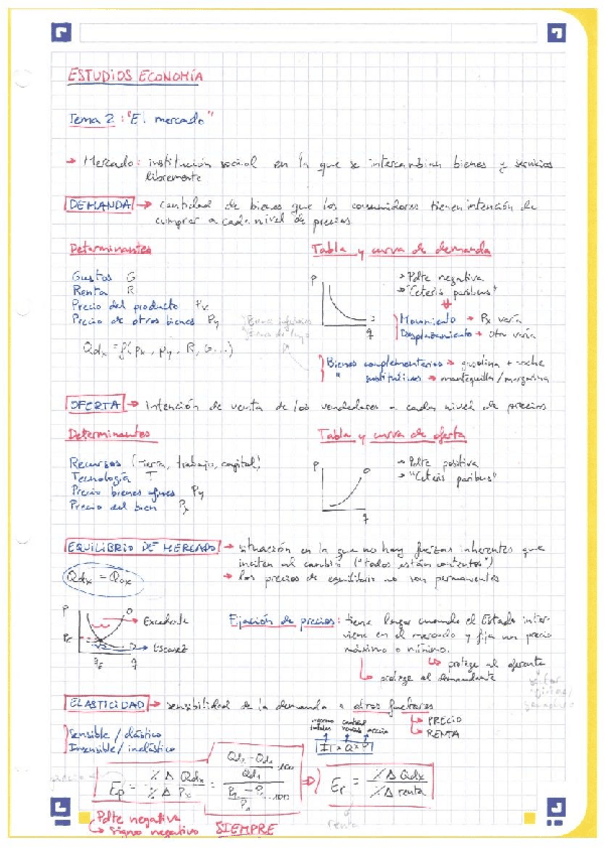 ESTUDIOS ECONOMÍA
Tema 2: "El mercado"
→ Mercado: institución social en la que se intercambian bienes y servicios
libremente
DEMANDA → cantidad de bienes que los consumidores tienen intención de
comprar a cada nivel de precios
Determinantes
Gustos G
Renta R
Precio del producto Px
Precio de otros bienes Py
Qdx = f(Px, Py, R, G...)
Tabla y curva de demanda
P
q
→ Pdte negativa
→ "Ceteris paribus"
Movimiento → Px varía
Desplazamiento → otra varía
Bienes complementarios → gasolina + coche
" sustitutivos → mantequilla/margarina
OFERTA → intención de venta de los vendedores a cada nivel de precios
Determinantes
Recursos (tierra, trabajo, capital)
Tecnología T
Precio bienes afines Py
Precio del bien Px
Tabla y curva de oferta
P
O
q
→ Pdte positiva
→ "Ceteris paribus"
EQUILIBRIO DE MERCADO → situación en la que no hay fuerzas inherentes que
inciten al cambio ("todos están contentos")
Qdx = Qox
→ los precios de equilibrio no son permanentes
P
O
→ Excedente
PE
→ Escasez
qE
q
Fijación de precios: tiene lugar cuando el Estado inter-
viene en el mercado y fija un precio
máximo o mínimo.
→ protege al oferente
→ protege al demandante
ELASTICIDAD → sensibilidad de la demanda a otros factores
→ PRECIO
→ RENTA
Sensible / elástico
Insensible / inelástico
ingresos totales cantidad precio
IT = Q × P
Ep = % Δ Qdx / % Δ Px
Er = % Δ Qdx / % Δ renta
Pdte negativa
→ signo negativo SIEMPRE
renta